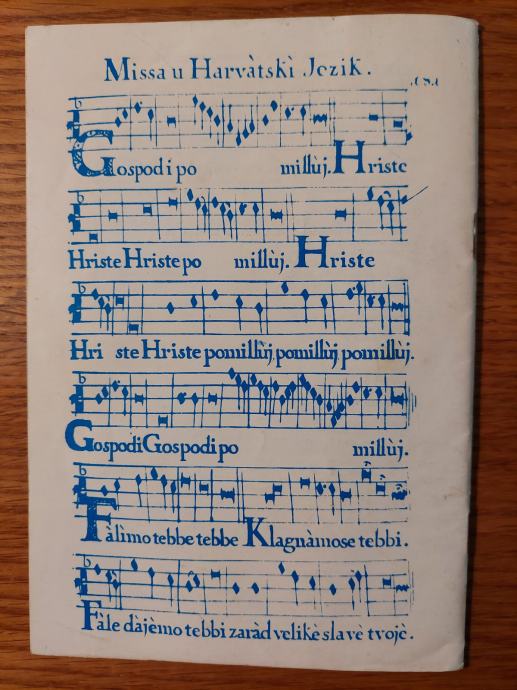 Missa u Harvàtskì Jezik.
Gospodi po millùj. Hriste
Hriste Hriste po millùj. Hriste
Hri ste Hriste pomillùj, pomillùj pomillùj.
Gospodi Gospodi po millùj.
Fàlìmo tebbe tebbe Klagnàmose tebbi.
Fàle dàjèmo tebbi zaràd velikè slavè tvojè.